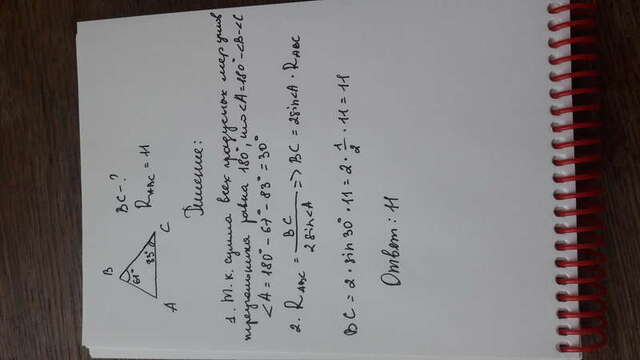 B
67°
83°
A
C
BC - ?
R ABC = 11
Решение:
1. Т.к. сумма всех градусных мер углов
треугольника равна 180°, то <A = 180° - <B - <C
<A = 180° - 67° - 83° = 30°
2. R ABC = BC / 2sin<A => BC = 2sin<A · R ABC
BC = 2 · sin30° · 11 = 2 · 1/2 · 11 = 11
Ответ: 11